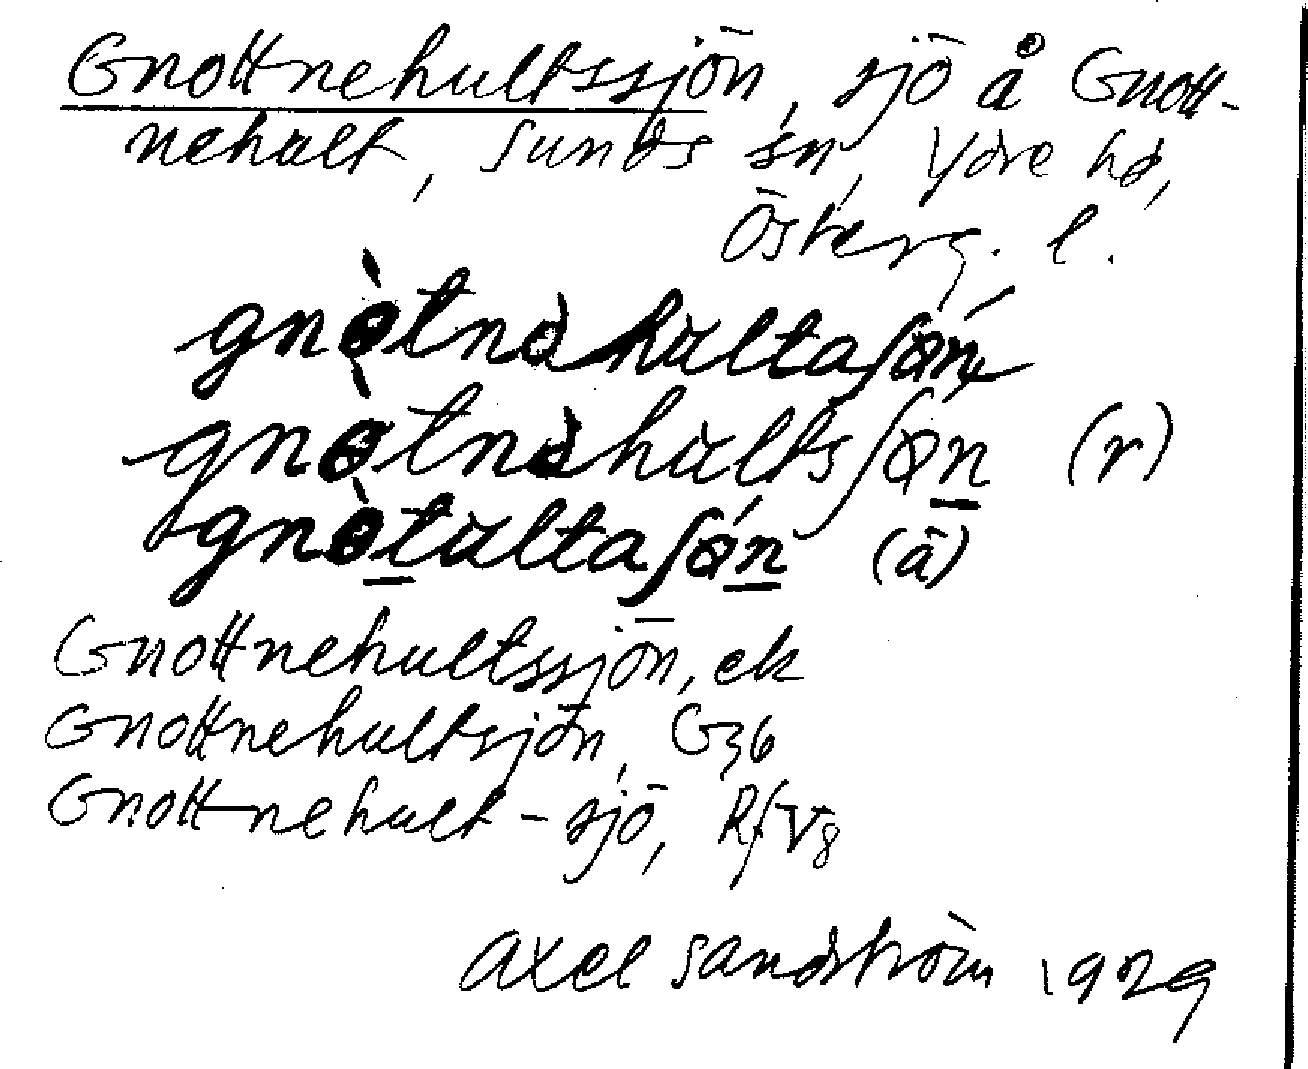 Gnottnehultssjön, sjö å Gnott-
nehult, Sunds sn, Ydre hd,
Österg. l.
gnòtnəhultasȯ́n
gnòtnəhultsʃøn (r)
gnòtultaʃøn (ä)
Gnottnehultssjön, ek
Gnottnehultsjön, G36
Gnottnehult-sjö, RfV8
Axel Sandström 1929